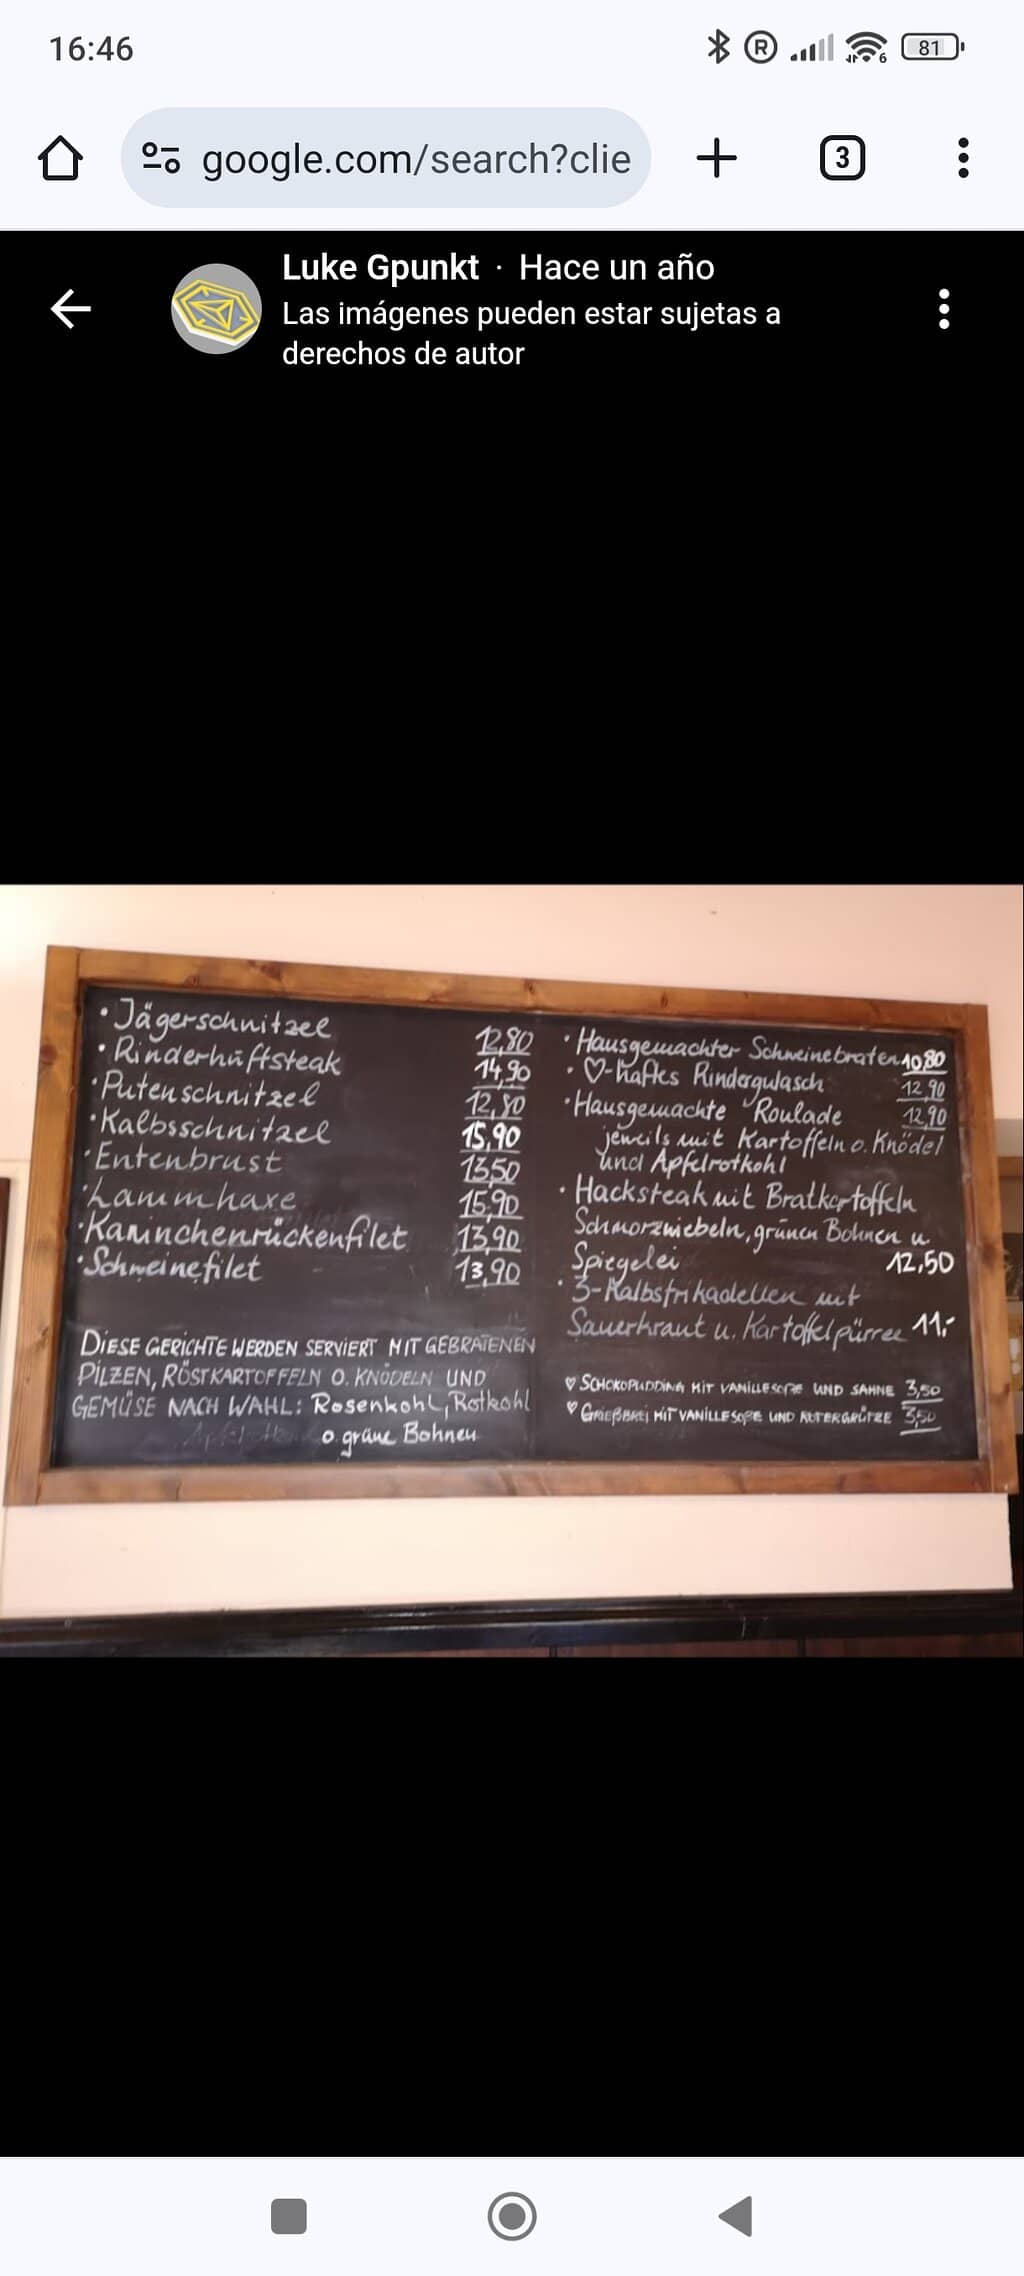 16:46
81
google.com/search?clie
3
Luke Gpunkt · Hace un año
Las imágenes pueden estar sujetas a
derechos de autor
· Jägerschnitzel 12,80
· Rinderhüftsteak 14,90
· Putenschnitzel 12,80
· Kalbsschnitzel 15,90
· Entenbrust 13,50
· Lammhaxe 15,90
· Kaninchenrückenfilet 13,90
· Schweinefilet 13,90
DIESE GERICHTE WERDEN SERVIERT MIT GEBRATENEN
PILZEN, RÖSTKARTOFFELN O. KNÖDELN UND
GEMÜSE NACH WAHL: Rosenkohl, Rotkohl
o grüne Bohnen
· Hausgemachter Schweinebraten 10,80
· ♡-haftes Rindergulasch 12,90
· Hausgemachte Roulade 12,90
jeweils mit Kartoffeln o. Knödel
und Apfelrotkohl
· Hacksteak mit Bratkartoffeln
Schmorzwiebeln, grünen Bohnen u.
Spiegelei 12,50
· 3-Kalbsfrikadellen mit
Sauerkraut u. Kartoffelpürree 11,-
♡ SCHOKOPUDDING MIT VANILLESOßE UND SAHNE 3,50
♡ GRIEßBREI MIT VANILLESOßE UND ROTERGRÜTZE 3,50